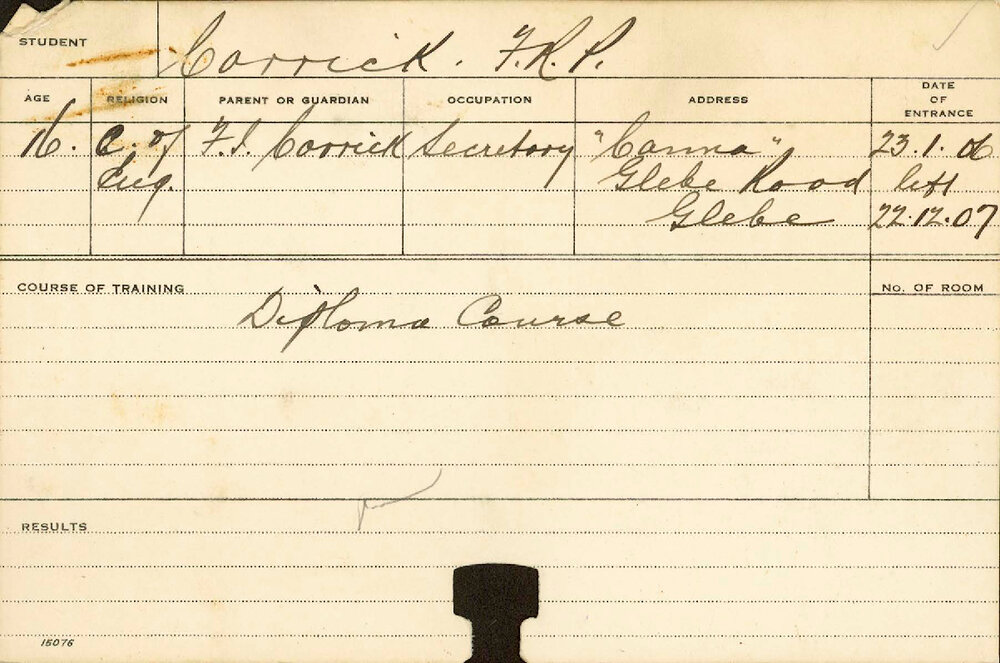 STUDENT Corrick. F.R.P.
AGE RELIGION PARENT OR GUARDIAN OCCUPATION ADDRESS DATE OF ENTRANCE
16. C. of F.I. Corrick Secretary "Canna" 23.1.06
Eng. Glebe Road left
Glebe 22.12.07
COURSE OF TRAINING No. OF ROOM
Diploma Course
RESULTS
15076